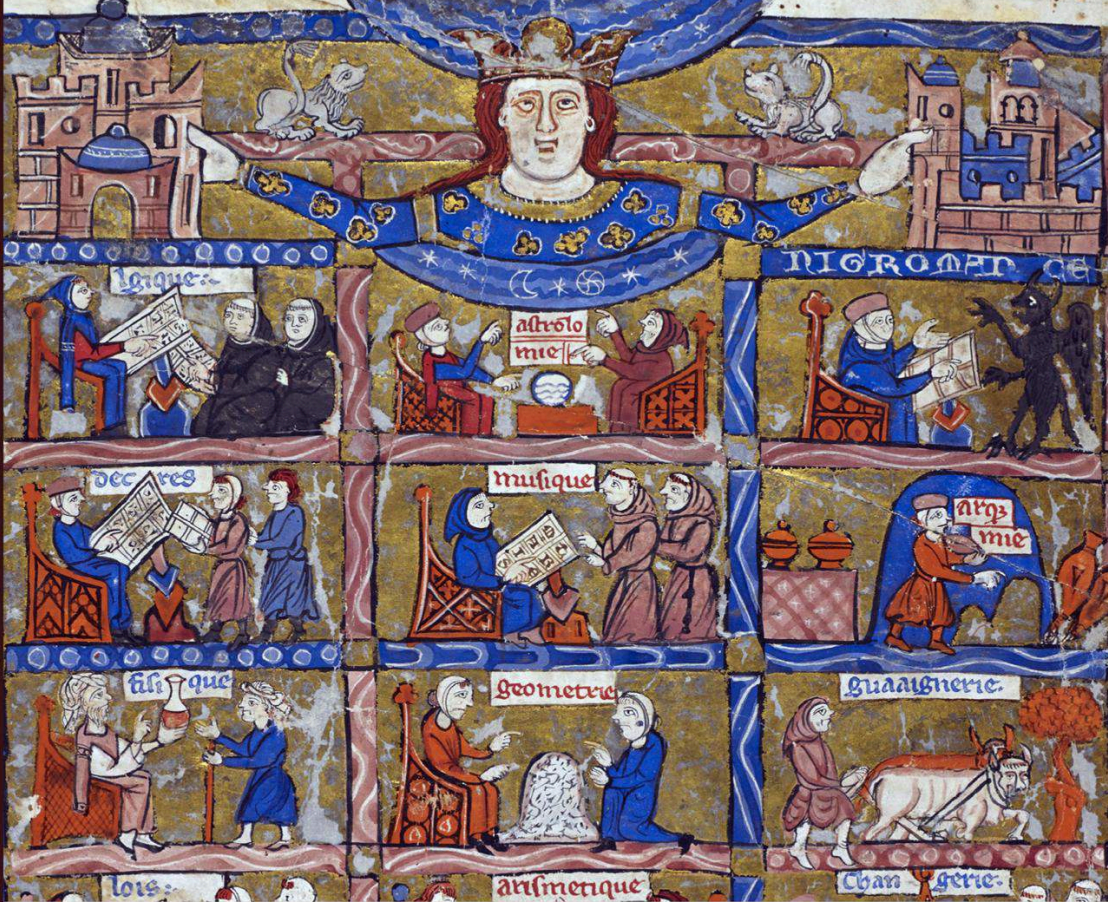 lgique:~
astrolo
mie
NIGROMANCE
decres
musique
arq3
mie
fisique
geometrie
guaaignerie.
lois:~
arismetique
Chan gerie.